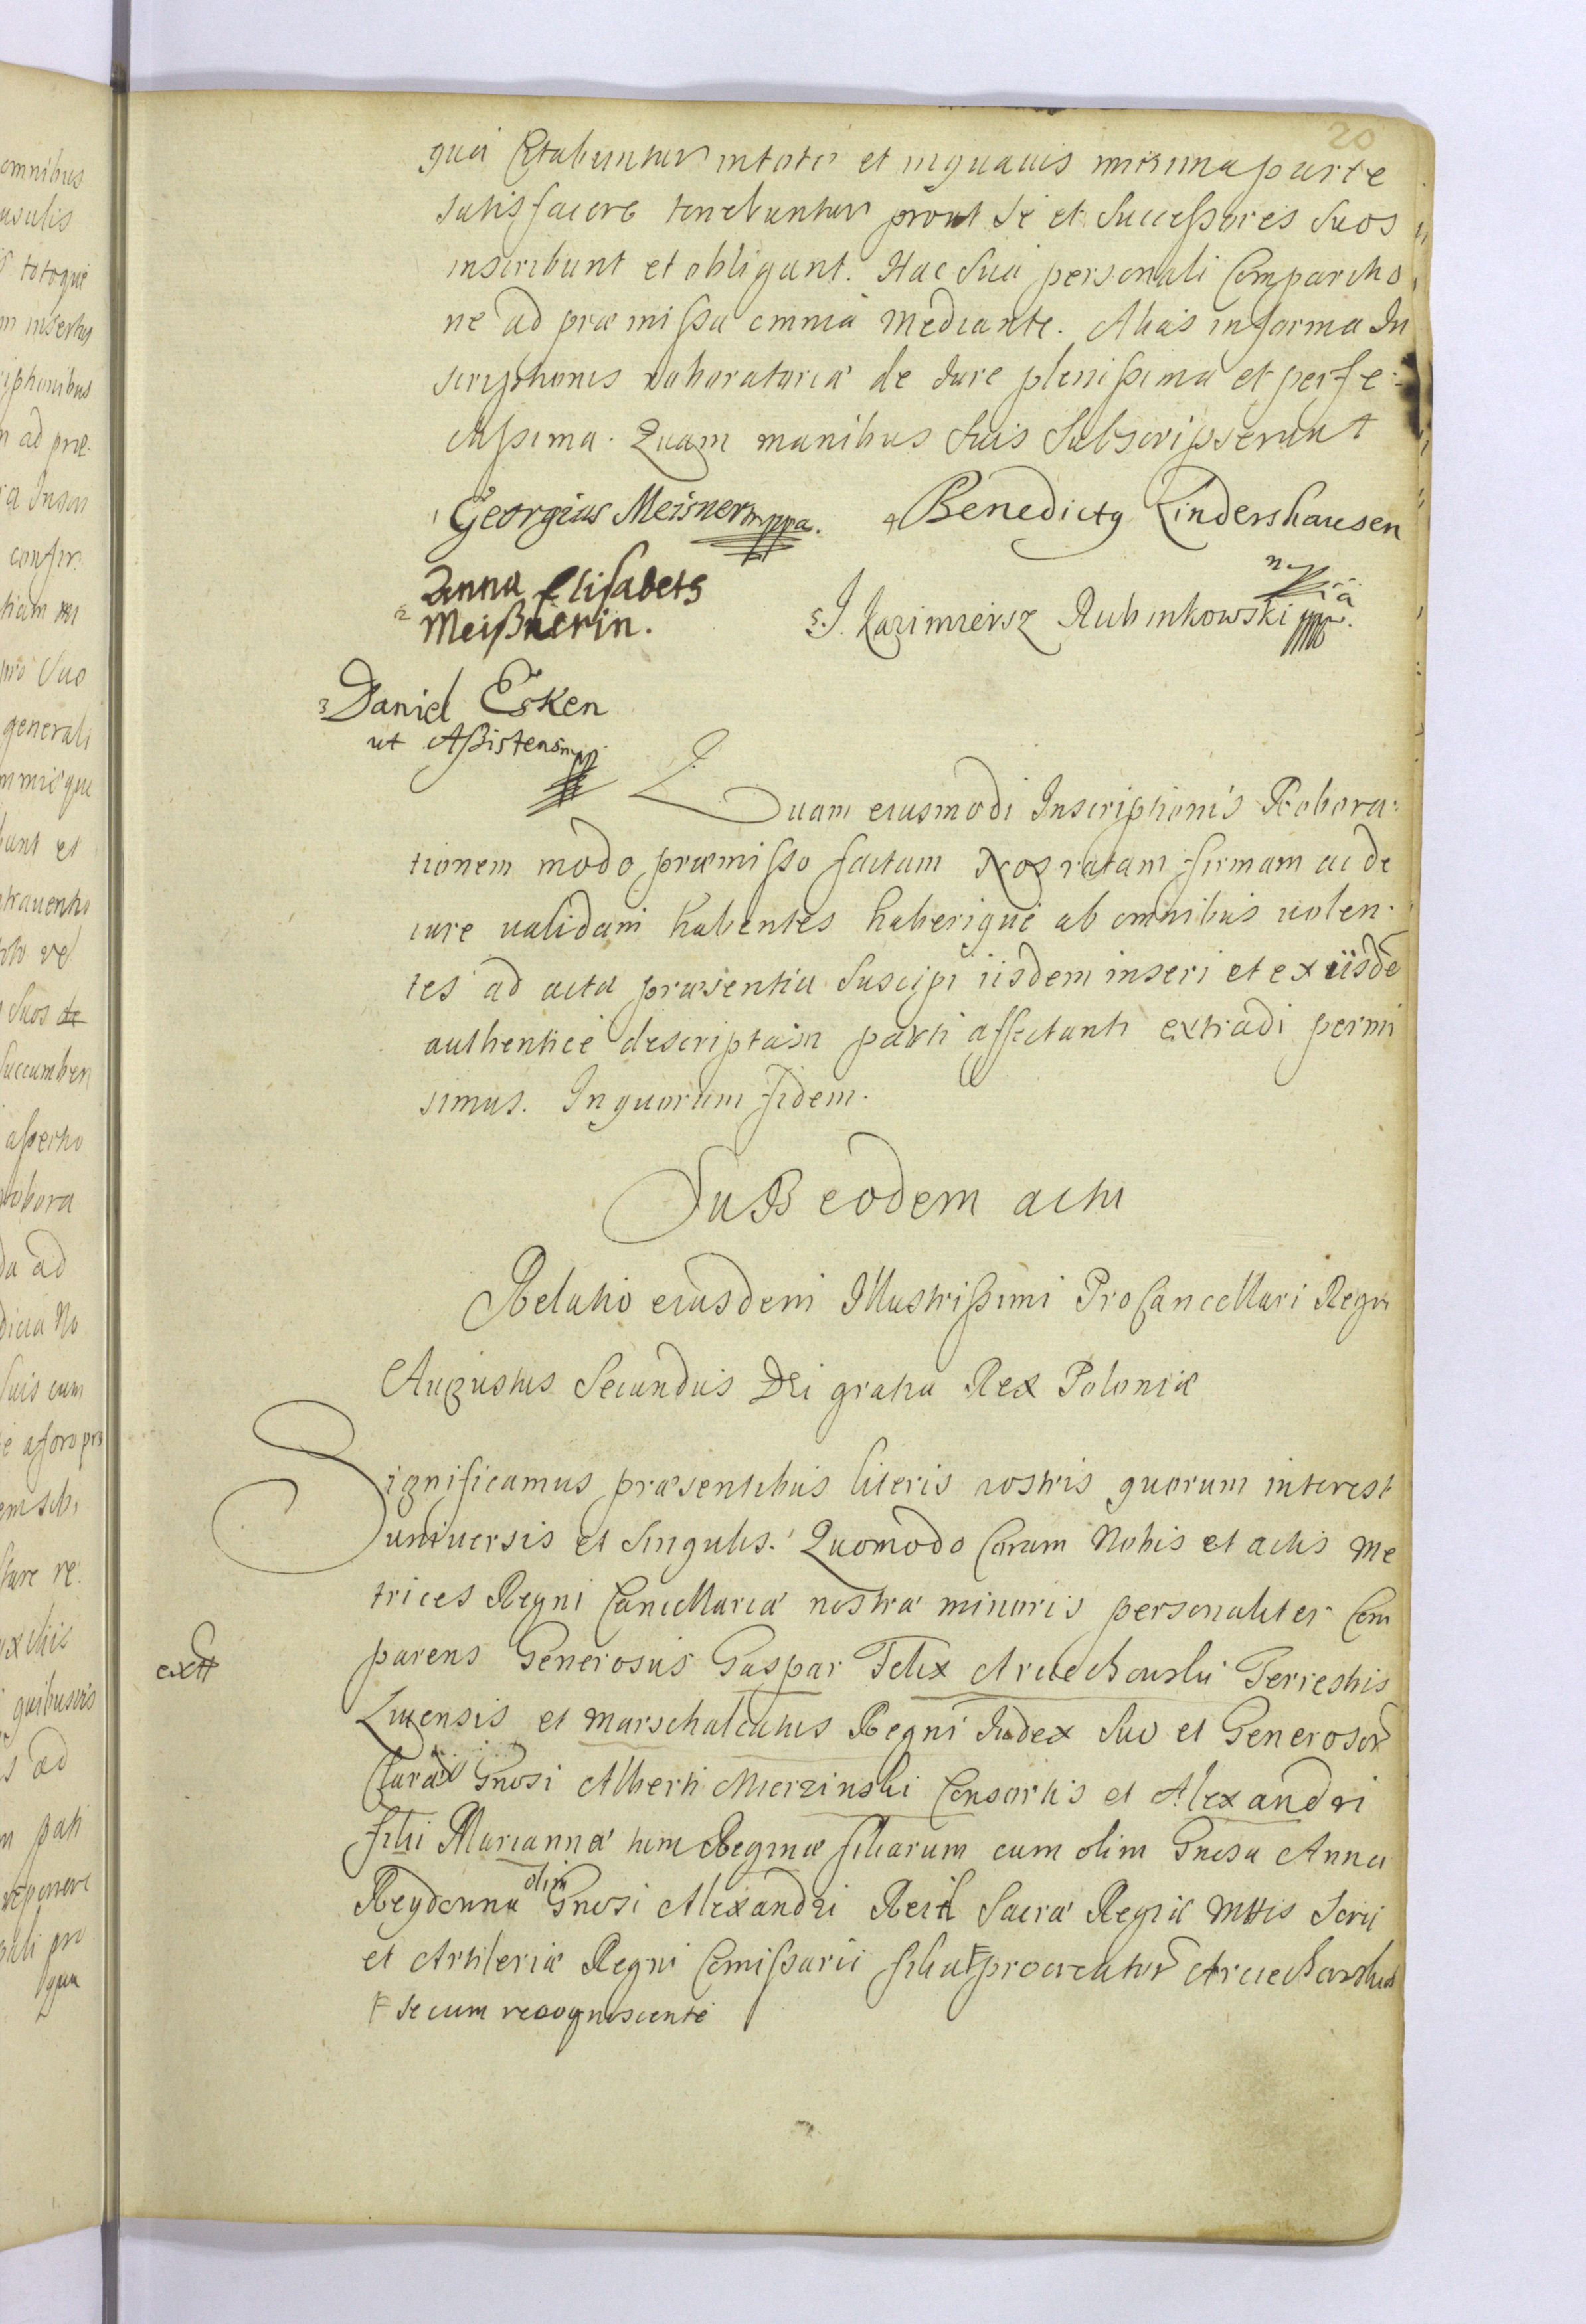 20
qua Citabuntur intoto et inquavis minima parte
satisfacere tenebuntur prout se et Successores Suos
inscribunt et obligant. Hac Sua personali Comparitio
ne ad præmissa omnia mediante. Alias in forma In
scriptionis roboratoriæ de Jure plenissima et perfe:
ctissima. Quam manibus Suis Subscripserunt
1 Georgius Meisner mppa.
4 Benedictq Lindershausen
mppa
2 Anna Elisabets
Meißnerin.
5. J. Kazimiersz Rubinkowski mpp.
3 Daniel Esken
ut Assistens mpp.
Quam eiusmodi Inscriptionis Robora:
tionem modo præmisso factam Nos ratam firmam ac de
iure validam habentes haberique ab omnibus volen:
tes ad acta præsentia Suscipi iisdem inseri et ex iisdē
authentice descriptam parti affectanti extradi permi
simus. In quorum fidem.
SuB eodem actu
Relatio eiusdem Illustrissimi ProCancellari Regni
Augustus Secundus Dei gratia Rex Poloniæ
Significamus præsentibus literis nostris quorum interest
universis et Singulis. Quomodo Coram Nobis et actis Me
trices Regni Cancellariæ nostræ minoris personaliter Com
extt
parens Generosus Gaspar Felix Arciechowski Terrestris
Livensis et Marschalcatus Regni Judex Suo et Generosor
Claræ Gnosi Alberti Mierzinski Consortis et Alexandri
filii Mariannæ tum Reginæ filiarum cum olim Gnosa Anna
Reydonna olim Gnosi Alexandri Sacræ Regiæ Mttis Scrii
et Artileriæ Regni Comissarii filia procreator Arciechowskich
Ŧ secum recognoscente
omnibus
totoque
m insertis
iptionibus
n ad præ:
confir:
pro Suo
generali
bunt et
Suos de
Succumben
assertio
robora
da ad
Suis cum
e a foro pro
quibusvis
s ad
n pati
reponere
qua